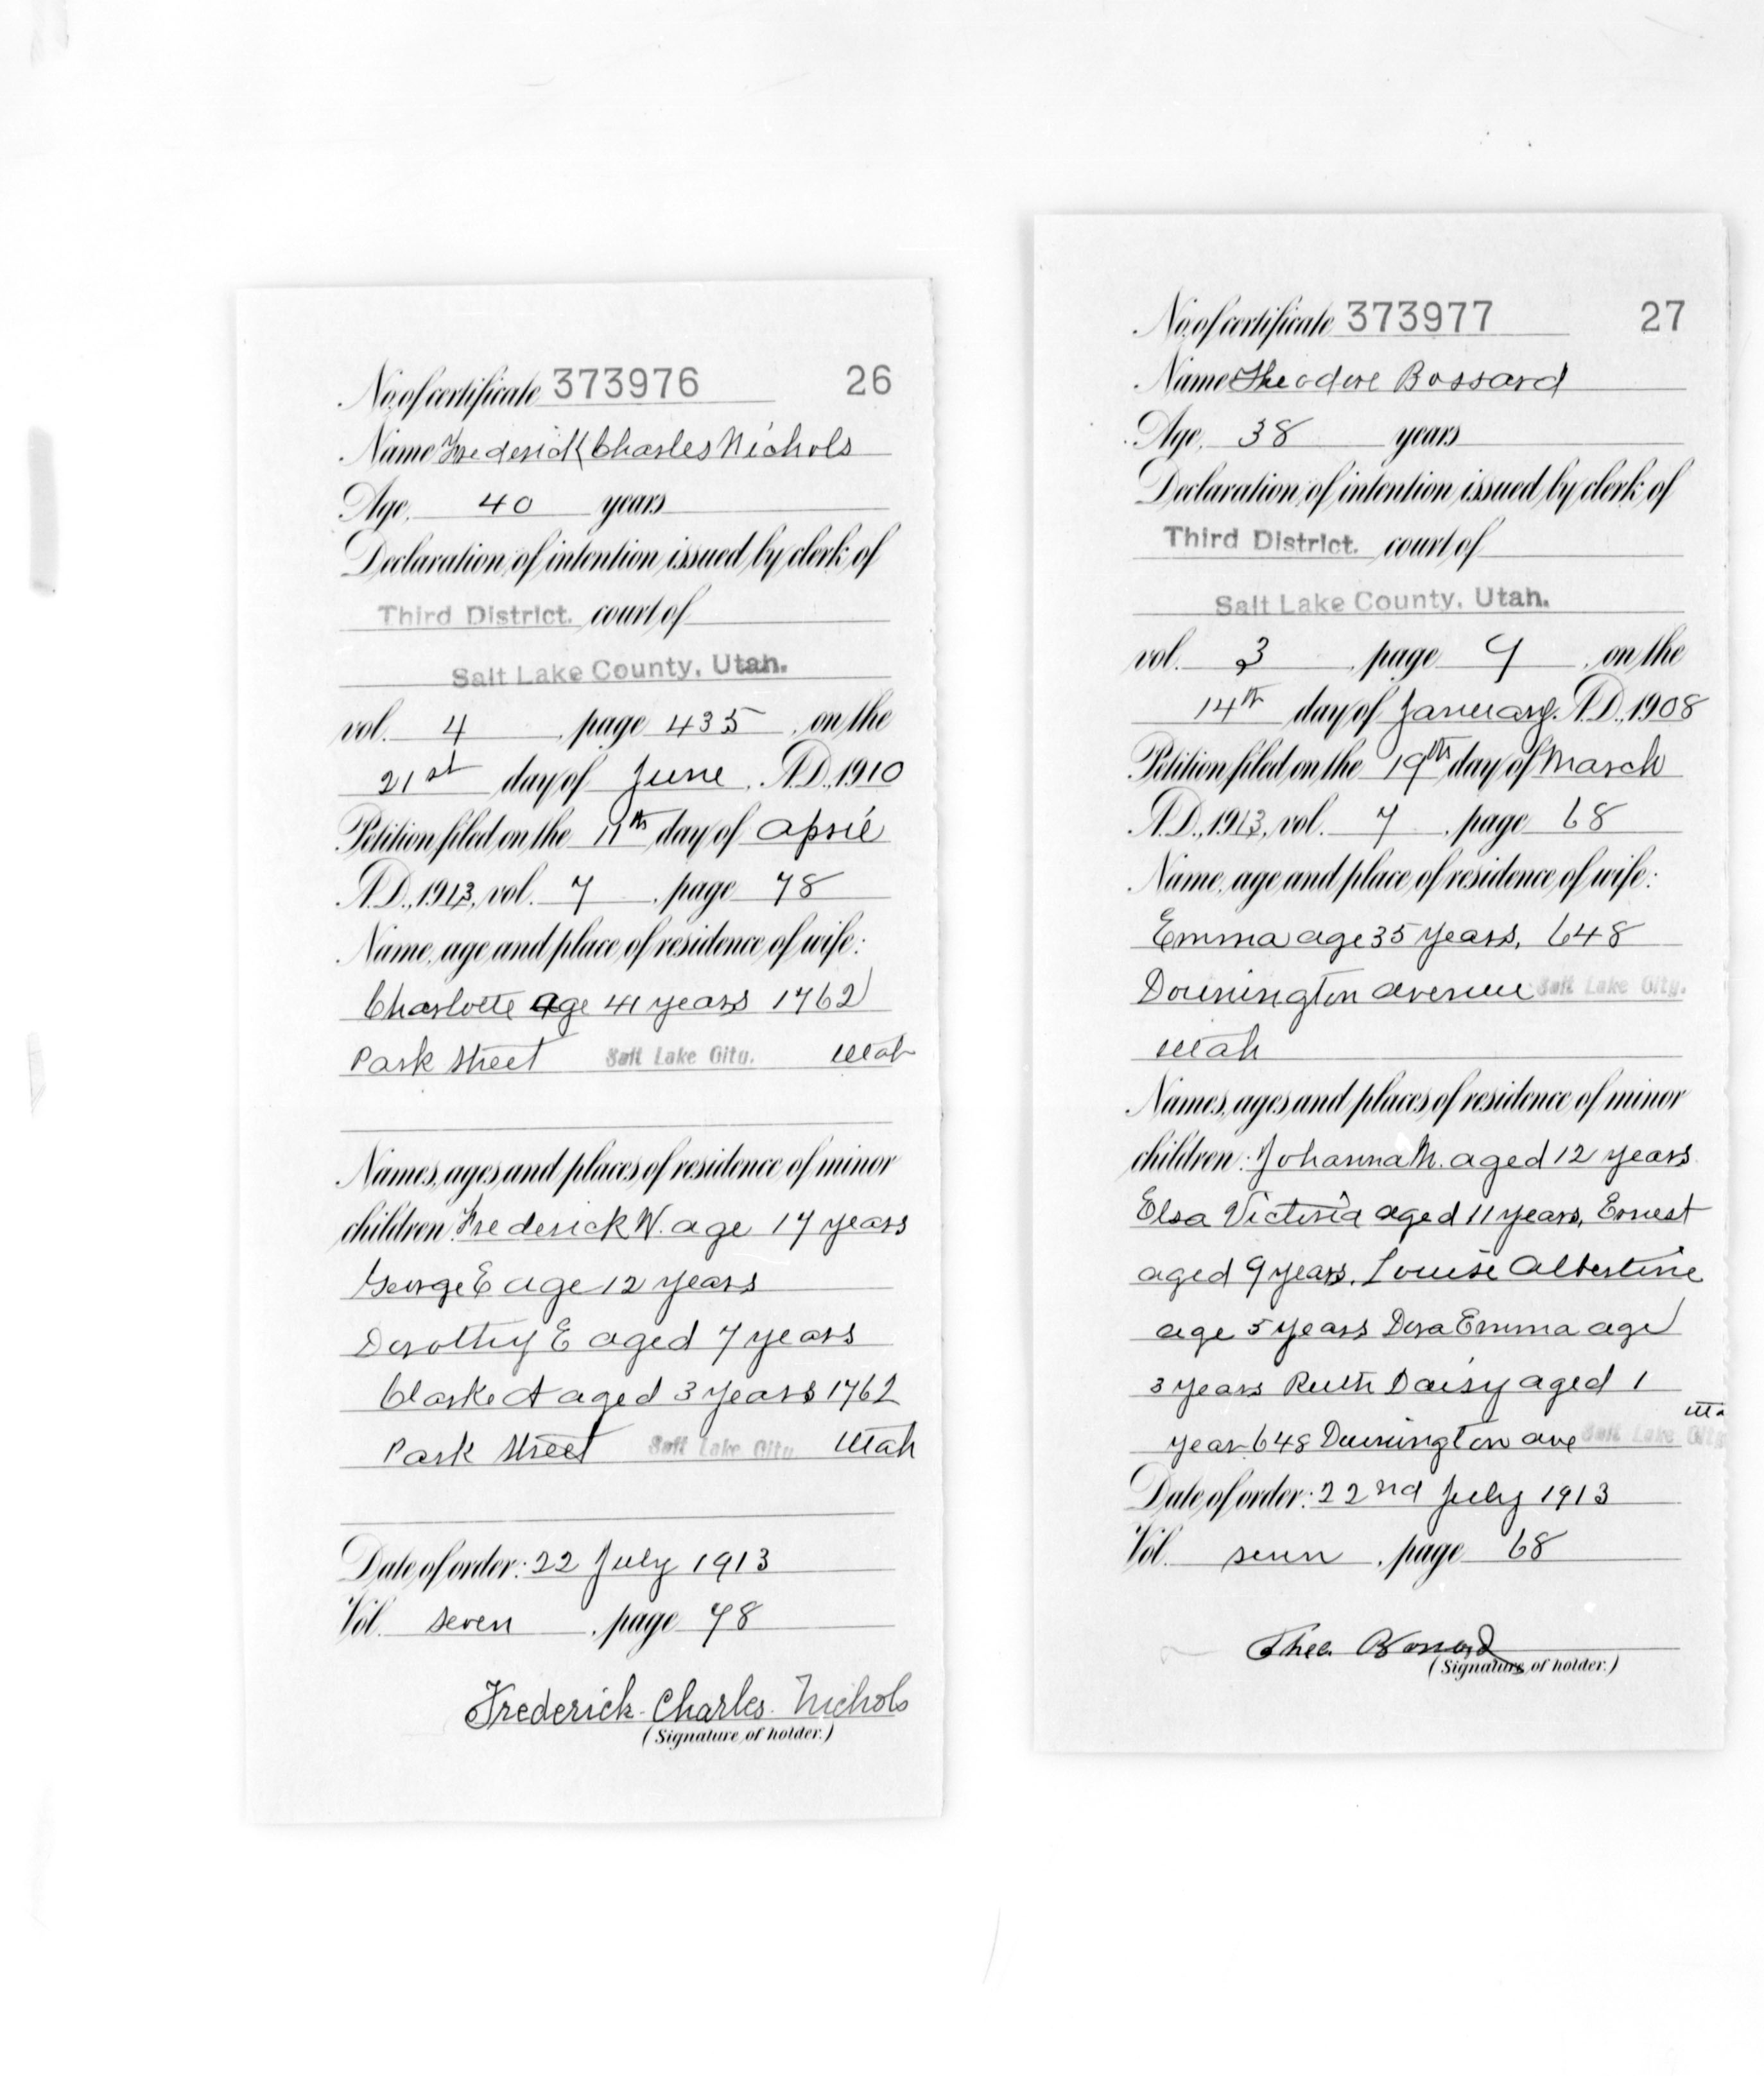 No. of certificate 373976 26
Name Frederick Charles Nichols
Age, 40 years
Declaration of intention issued by clerk of
Third District. court of
Salt Lake County, Utah.
vol. 4, page 435, on the
21st day of June, A.D., 1910
Petition filed on the 11th day of April
A.D., 1913, vol. 7, page 78
Name, age and place of residence of wife:
Charlotte age 41 years 1762
Park Street Salt Lake City. Utah
Names, ages and places of residence of minor
children: Frederick W. age 17 years
George E age 12 years
Dorothy E aged 7 years
Clarke A aged 3 years 1762
Park Street Salt Lake City Utah
Date of order: 22 July 1913
Vol. seven, page 78
Frederick Charles Nichols
(Signature of holder.)
No. of certificate 373977 27
Name Theodore Bossard
Age, 38 years
Declaration of intention issued by clerk of
Third District. court of
Salt Lake County, Utah.
vol. 3, page 9, on the
14th day of January. A.D., 1908
Petition filed on the 19th day of March
A.D., 1913, vol. 7, page 68
Name, age and place of residence of wife:
Emma age 35 years, 648
Downington avenue Salt Lake City.
Utah
Names, ages and places of residence of minor
children: Johanna M. aged 12 years
Elsa Victoria aged 11 years, Ernest
aged 9 years, Louise Albertine
age 5 years Dora Emma age
3 years Ruth Daisy aged 1
year 648 Downington ave Salt Lake City
Date of order: 22nd July 1913
Vol. seven, page 68
Theo. Bossard
(Signature of holder.)